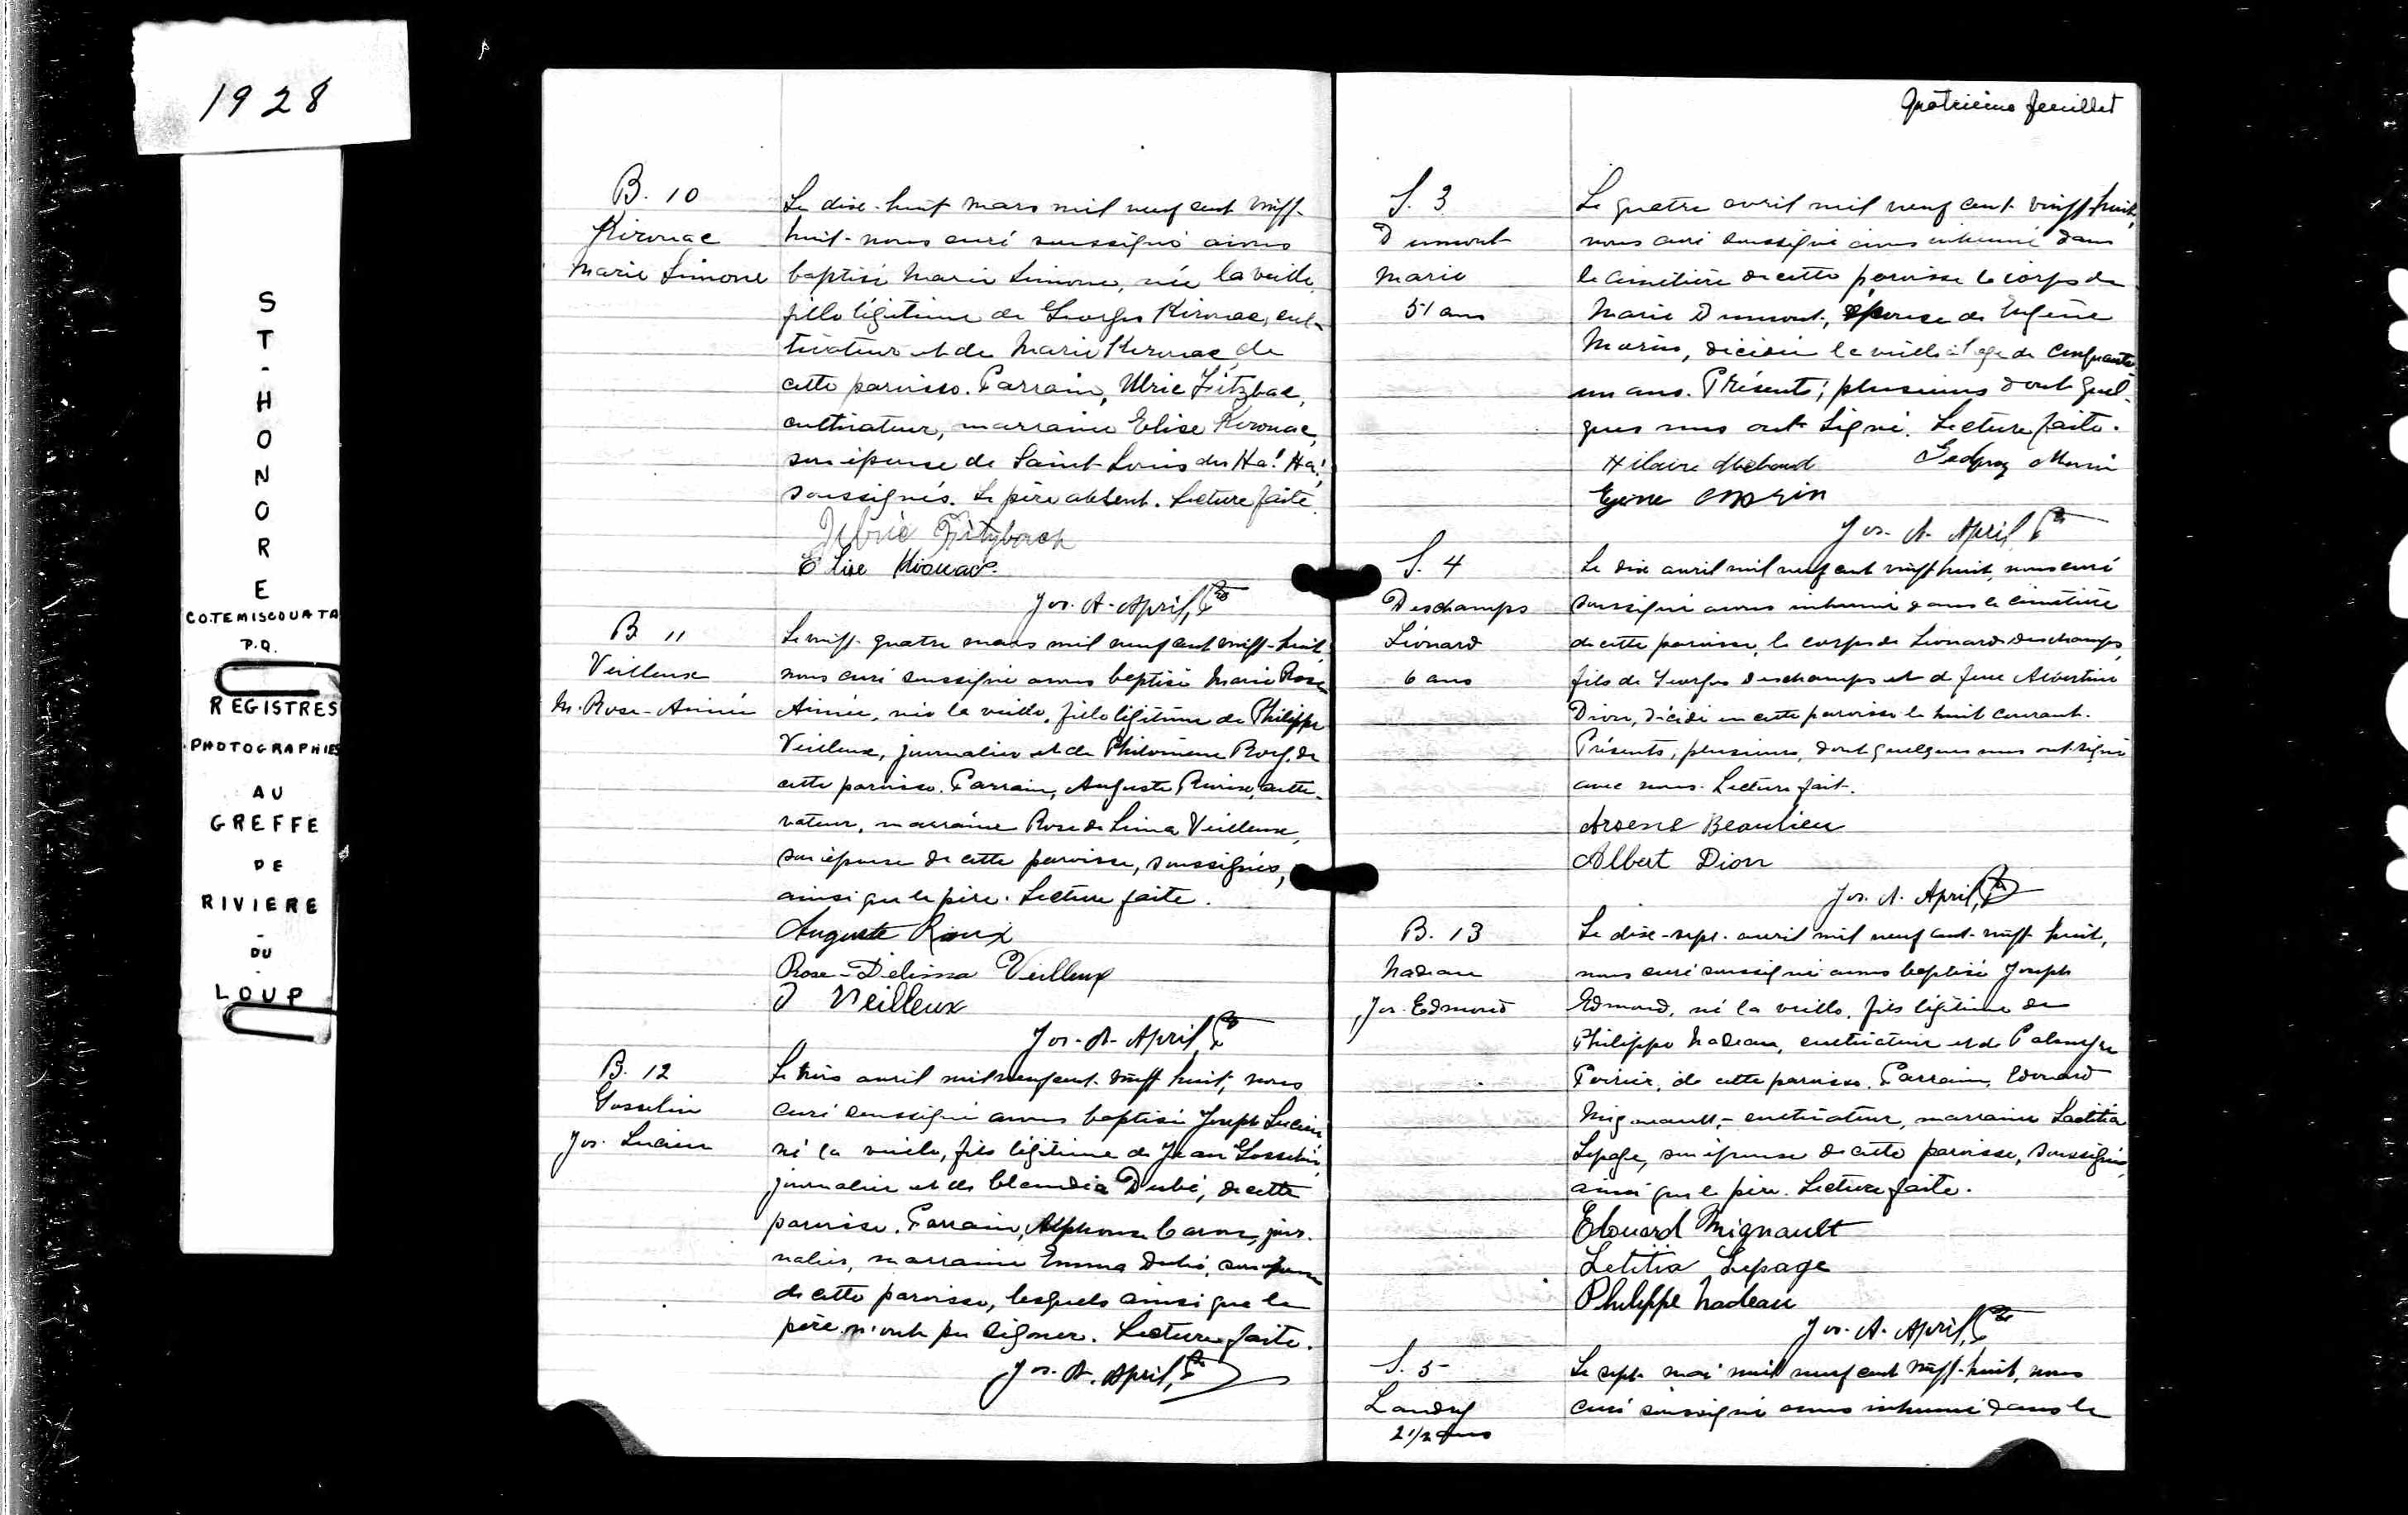 1928
ST-HONORE
CO.TEMISCOUATA
P.Q.
REGISTRES
PHOTOGRAPHIES
AU
GREFFE
DE
RIVIERE
-
DU
-
LOUP
B. 10
Kirouac
Marie Simone
Le dix-huit mars mil neuf cent vingt-
huit nous curé soussigné avons
baptisé Marie Simone, née la veille,
fille légitime de Georges Kirouac, cul-
tivateur et de Marie Kerouac de
cette paroisse. Parrain, Ulric Fitzbac,
cultivateur, marraine Elise Kerouac,
son épouse de Saint-Louis du Ha! Ha!
soussignés. Le père absent. Lecture faite.
Fitzback
Elise Kirouac
Jos. A. April, Ptre
B 11
Veilleux
M. Rose-Aimée
Le vingt-quatre mars mil neuf cent vingt-huit,
nous curé soussigné avons baptisé Marie Rose
Aimée, née la veille, fille légitime de Philippe
Veilleux, journalier et de Philomène Roy, de
cette paroisse. Parrain, Auguste Rioux, culti-
vateur, marraine Rose de Lima Veilleux,
son épouse de cette paroisse, soussignés,
ainsi que le père. Lecture faite.
Auguste Rioux
Rose-Délima Veilleux
P Veilleux
Jos. A. April, Ptre
B. 12
Gosselin
Jos. Lucien
Le trois avril mil neuf cent vingt huit, nous
curé soussigné avons baptisé Joseph Lucien
né la veille, fils légitime de Jean Gosselin,
journalier et de Claudia Dubé, de cette
paroisse. Parrain, Alphonse Caron, jour-
nalier, marraine Emma Dubé, son épouse
de cette paroisse, lesquels ainsi que le
père n'ont pu signer. Lecture faite.
Jos. A. April, Ptre
Quatrième feuillet
S. 3
Dumont
Marie
51 ans
Le quatre avril mil neuf cent vingt-huit,
nous curé soussigné avons inhumé dans
le cimetière de cette paroisse le corps de
Marie Dumont, épouse de Eugène
Morin, décédée la veille à l'age de cinquante
un ans. Présents; plusieurs dont quel-
ques uns ont signé. Lecture faite.
Hilaire Michaud Morin
Morin
Jos. A. April Ptre
S. 4
Deschamps
Léonard
6 ans
Le dix avril mil neuf cent vingt huit, nous curé
soussigné avons inhumé dans le cimetière
de cette paroisse, le corps de Léonard Deschamps,
fils de Georges Deschamps et d feue Albertine
Dion, décédé en cette paroisse le huit courant.
Présents, plusieurs, dont quelques uns ont signé
avec nous. Lecture fait.
Arsene Beaulieu
Albert Dion
Jos. A. April, Ptre
B. 13
Nadeau
Jos. Edmond
Le dix-sept avril mil neuf cent vingt huit,
nous curé soussigné avons baptisé Joseph
Edmond, né la veille, fils légitime de
Philippe Nadeau, cultivateur et de
Poirier, de cette paroisse. Parrain, Edouard
Mignault, cultivateur, marraine Laetitia
Lepage, son épouse de cette paroisse, soussignés,
ainsi que le père. Lecture faite.
Edouard Mignault
Letitia Lepage
Philippe Nadeau
Jos. A. April, Ptre
S. 5
Landry
2 1/2 ans
Le sept mai mil neuf cent vingt-huit, nous
curé soussigné avons inhumé dans le